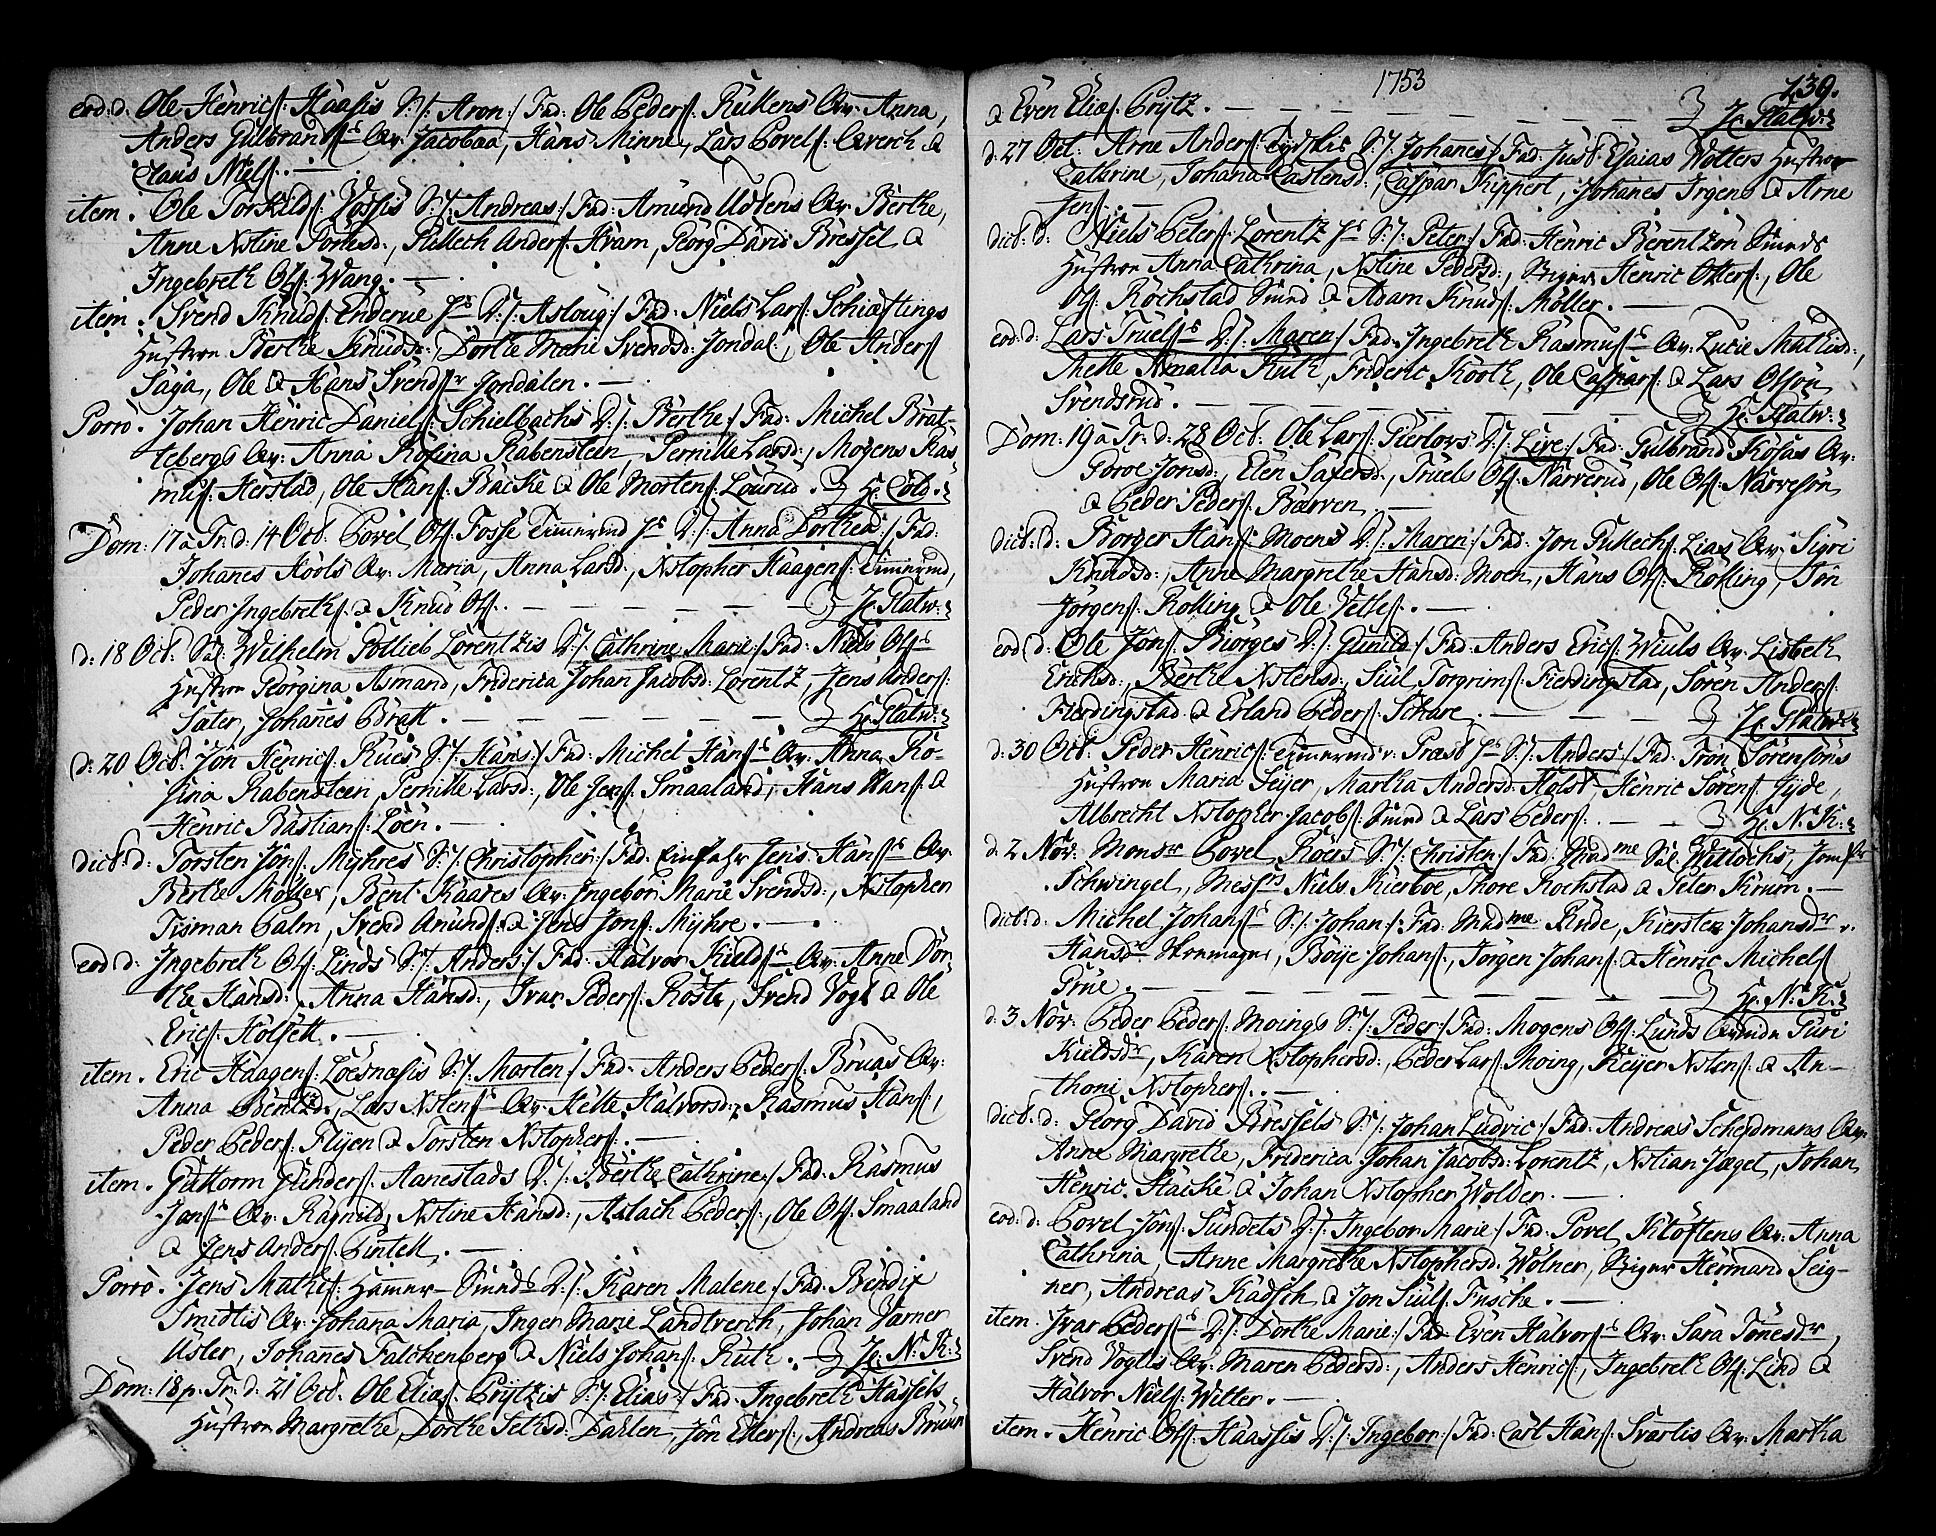 eod: d: Ole Henrics: Haasis S:/: Aron:/ Fad: Ole Peders: Rullens Qv: Anna,
Anders Gulbrands: Qv: Jacobaa, Hans Minne, Lars Povels: Qvench &
Claus Niels:. —
item. Ole Torkilds: Vossis S:/: Andreas:/ Fad: Amund Udtens Qv: Berthe,
Anne Xstine Tomæd:, Gullech Anders: Kram, Georg David Bressel &
Ingebreth Ols: Wang. —
item. Svend Knuds: Enderue Hs D:/: Asloug:/ Fad: Niels Lars: Schiæftings
Hustrue Berthe Knuds:, Dorthe Marie Svendsd: Jondal, Ole Anders:
Saga, Ole & Hans Svends:r Jondalen. —
Porro. Johan Henric Daniels: Schielbachs D:/: Berthe:/ Fad: Michel Brat-
tebergs Qv: Anna Rosina Rabensteen, Pernille Larsd:, Mogens Ras-
mus: Herstad, Ole Hans: Backe & Ole Mortens: Lourud. Hr: Cold.
Dom: 17 à Tr: d: 14 Oct: Povel Ols: Fosse Timermd Hs D:/: Anna Dorthea:/ Fad:
Johanes Kools Qv: Maria, Anna Larsd:, Xstopher Haagens: Timermd,
Peder Ingebreths: & Knud Ols:. — — — — — Hr: Flatw:
d: 18 Oct: Sal: Wilhelm Gotlieb Lorentzis D:/: Cathrine Marie:/ Fad: Niels Ols:
Hustrue Georgina Asmand, Friderica Johan Jacobsd: Lorentz, Jens Anders:
Sater, Johanes Bratt. — — — — — Hr: Flatw:
d: 20 Oct: Jon Henrics: Rues S:/: Hans:/ Fad: Michel Hans: Qv: Anna Ro-
sina Rabensteen, Pernille Larsd:, Ole Jens: Smaaland, Hans Hans: &
Henric Bastians: Loen. —
dict: d: Torsten Jons: Myhres S:/: Christopher:/ Fad: Einfahr Jens Hans: Qv:
Berthe Moller, Bent Kaares Qv: Ingebor Marie Svendsd:, Xstopher
Tisman Calm, Svend Amunds: & Jens Jons: Myhre. —
eod d: Ingebreth Ols: Linds S:/: Anders:/ Fad: Halvor Kields: Qv: Anne Dor-
the Hansd:, Anna Hansd:, Ivar Peders: Roste, Svend Vogt & Ole
Erics: Holsett. —
item. Eric Haagens: Loesnæsis S:/: Morten:/ Fad: Anders Peders: Bruas Qv:
Anna Bentzd:, Lars Xstens: Qv: Helle Halvorsd:, Rasmus Hans:,
Peder Peders: Flyen & Torsten Xstophers:. —
item. Guttorm Gunders: Aanestads D:/: Berthe Cathrine:/ Fad: Rasmus
Jons: Qv: Ragnild, Xstine Hansd:, Aslach Peders:, Ole Ols: Smaaland
& Jens Anders: Lintell. —
Porro. Jens Mathis: Hamer-Smeds D:/: Karen Malene:/ Fad: Bendix
Smidtis Qv: Johana Maria, Inger Marie Landtverch, Johan Varner
Usler, Johannes Falckenberg & Niels Johans: Ruth. Hr: N: K:
Dom: 18 p: Tr: d: 21 Oct: Ole Elias: Brytzis S:/: Elias:/ Fad: Ingebreth Hassels
Hustrue Margrethe, Dorthe Sethsd: Dahlen, Jon Ellers:, Andreas Bruun
1753
139.
& Even Elias: Prytz. — — — — — Hr: Flatw:
d: 27 Oct: Arne Anders: Tydskis S:/: Johanes:/ Fad: Just: Esaias Wolters Hustrue
Cathrine, Johana Castensd:, Caspar Kippert, Johanes Irgens & Arne
Jens:. —
dict: d: Niels Peters: Lorentz Hs S:/: Peter:/ Fad: Henric Berentzon Smeds
Hustrue Anna Cathrina, Xstine Pedersd:, Henric Otters:, Ole
Ols: Rochstad Smed & Adam Knuds: Moller. —
eod: d: Lars Truels: D:/: Maren:/ Fad: Ingebreth Rasmus: Qv: Lucie Mathisd:,
Mette Amalia Ruth, Frideric Kooth, Ole Caspars: & Lars Olson
Svendsrud. — — — — — Hr: Flatw:
Dom: 19 à Tr: d: 28 Oct: Ole Lars: Gierlovs D:/: Live:/ Fad: Gulbrand Kosas Qv:
Goroe Jonsd:, Elen Safersd:, Truels Ols: Narverud, Ole Ols: Narveson
& Peder Peders: Barven. —
dict: d: Borger Hans: Moens D:/: Maren:/ Fad: Jon Gullechs: Lias Qv: Sigri
Knudsd:, Anne Margrethe Hansd: Moen, Hans Ols: Kolling, Jon
Jorgens: Kolling & Ole Vetles:. —
eod d: Ole Jons: Biorges D:/: Gunild:/ Fad: Anders Erics: Wiuls Qv: Lisbeth
Erichsd:, Berthe Xstensd:, Siul Torgrims: Fierdingstad, Soren Anders:
Fierdingstad & Erland Peders: Schare. — — — Hr: Flatw:
d: 30 Oct: Peder Henrics: Timermd v: Præst: Hs S:/: Anders:/ Fad: Tron Sorensons
Hustrue Maria Seyer, Martha Andersd: Holst, Henric Sorens: Jyde,
Albrecht Xstopher Jacobs: Smed & Lars Peders:. — — Hr: N: K:
d: 2 Nov: Monsr Povel Roers S:/: Christen:/ Fad: Madme Sal: Wittochs, Jomfr
Schwingel, Messrs Niels Kierboe, Thore Rochstad & Peter Krum. —
dict: d: Michel Johans: S:/: Johan:/ Fad: Madme Rinde, Kiersten Johansdr v.
Hansdr Skomager, Boye Johans:, Jorgen Johans: & Henric Michels:
Grue. — — — — — — Hr: N: K:
d: 3 Nov: Peder Peders: Moings S:/: Peder:/ Fad: Mogens Ols: Lunds Qvinde Guri
Kieldsdr, Karen Xstophersd:, Peder Lars: Moing, Reyer Xstens: & An-
thoni Xstophers:. —
dict: d: Georg David Bressels S:/: Johan Ludvic:/ Fad: Andreas Scheidmans Qv:
Anne Margrethe, Friderica Johan Jacobsd: Lorentz, Xstian Jæger, Johan
Henric Hacke & Johan Xstopher Wolder. —
eod: d: Povel Jons: Sundets D:/: Ingebor Marie:/ Fad: Povel Kloftens Qv: Anna
Cathrina, Anne Margrethe Xstophersd: Wolner, Herman Seig-
ner, Andreas Kadsch & Jon Siuls: Fusche. —
item. Ivar Peders: D:/: Dorthe Marie:/ Fad: Even Halvors: Qv: Sara Tomesdr,
Svend Vogts Qv: Maren Pedersd:, Anders Henrics:, Ingebreth Ols: Lind &
Halvor Niels: Witter. —
item. Henric Ols: Haassis D:/: Ingebor:/ Fad: Carl Hans: Svartis Qv: Martha